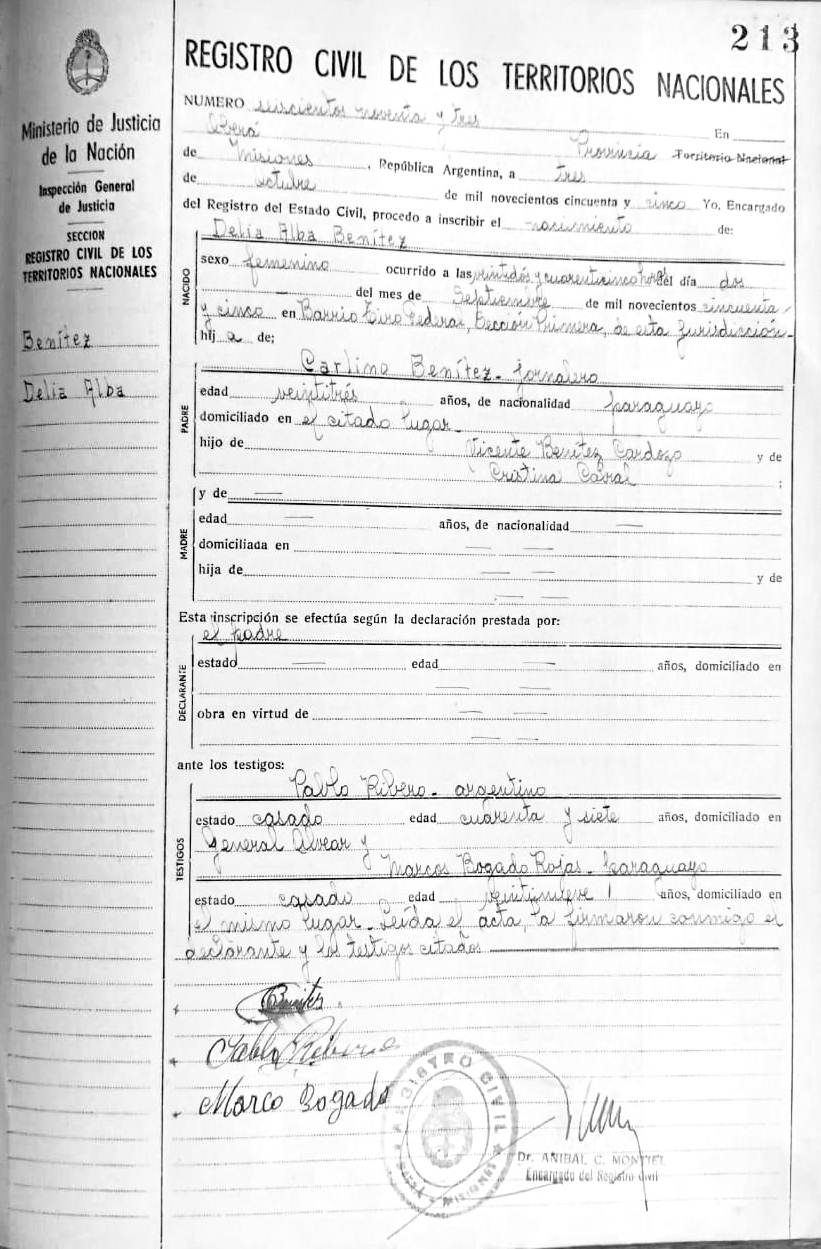 213
REGISTRO CIVIL DE LOS TERRITORIOS NACIONALES
Ministerio de Justicia
de la Nación
Inspección General
de Justicia
SECCION
REGISTRO CIVIL DE LOS
TERRITORIOS NACIONALES
Benítez
Delia Alba
NUMERO seiscientos noventa y tres
En
Oberá Provincia Territorio Nacional
de Misiones, República Argentina, a tres
de octubre de mil novecientos cincuenta y cinco Yo, Encargado
del Registro del Estado Civil, procedo a inscribir el nacimiento de:
NACIDO
Delia Alba Benítez
sexo femenino ocurrido a las veintidós y cuarenticinco horas del día dos
del mes de Septiembre de mil novecientos cincuenta
y cinco en Barrio Tiro Federal, Sección Primera, de esta Jurisdicción-
hij a de;
PADRE
Carlino Benítez- jornalero
edad veintitrés años, de nacionalidad paraguayo
domiciliado en el citado lugar-
hijo de Vicente Benítez Cardozo y de
Cristina Cabral ;
MADRE
y de —
edad — años, de nacionalidad —
domiciliada en — —
hija de — — y de
— —
Esta inscripción se efectúa según la declaración prestada por:
el padre
DECLARANTE
estado — edad — años, domiciliado en
— —
obra en virtud de — —
— —
ante los testigos:
TESTIGOS
Pablo Ribero- argentino
estado casado edad cuarenta y siete años, domiciliado en
General Alvear y
Marcos Bogado Rojas- paraguayo
estado casado edad veintinueve años, domiciliado en
el mismo lugar- Leída el acta, la firmaron conmigo el
declarante y los testigos citados
Benitez
Pablo Ribero
Marco Bogado
REGISTRO CIVIL
OBERA MISIONES
Dr. ANIBAL C. MONTIEL
Encargado del Registro Civil